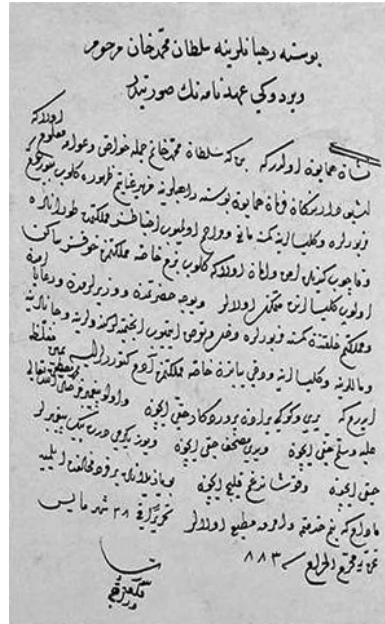 بوسنه رهبانلرينه سلطان محمد خان مرحوم
ويردوكى عهدنامه نك صورتيدر
نشان همايون اولدر كه بن كه سلطان محمد خانم جمله خواص و عوامه معلوم اولا كه
اشبو دارندكان فرمان همايون بوسنه راهبلرينه مزيد عنايتم ظهوره كلوب بيوردم كه
مزبورلره و كليسالرينه كمسنه مانع و مزاحم اولميوب احتياطسز مملكتمده طورالر
و قاچوب كيدنلر امن و امانده اولالر كلوب بزم خاصه مملكتمزده خوفسز ساكن
اولوب كليسالرينه متمكن اولالر و يوجه حضرتمدن و وزيرلرمدن و رعايالرمدن
و مملكتم خلقندن كمسنه مزبورلره دخل و تعرض ايتميوب انجتميه لر كندولره و جانلرينه
و ماللرينه و كليسالرينه و دخى يباندن خاصه مملكتمزه آدم كتورورلرسه يمين مغلظه
ايدرم كه يرى كوكى يارادن پروردكار حقيچون و اولو پيغمبرمز محمد مصطفى صلى الله تعالى
عليه وسلم حقيچون و يدى مصحف حقيچون و يوز يكرمى درت بيك پيغمبرلر
حقيچون و قوشاندوغم قليج حقيچون بو يازيلانلره بر فرد مخالفت ايلميه
مادام كه بنم خدمتمه و امرمه مطيع اولالر تحريرا فى ٢٨ شهر مايس
محرم الحرام سنه ٨٨٣